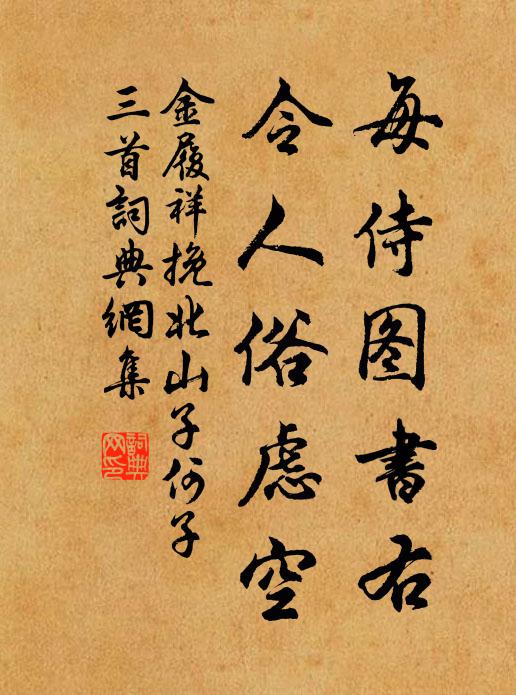 每侍图書右
令人俗虑空
金履祥挽北山子何子
三首詞典網集
詞典
网印